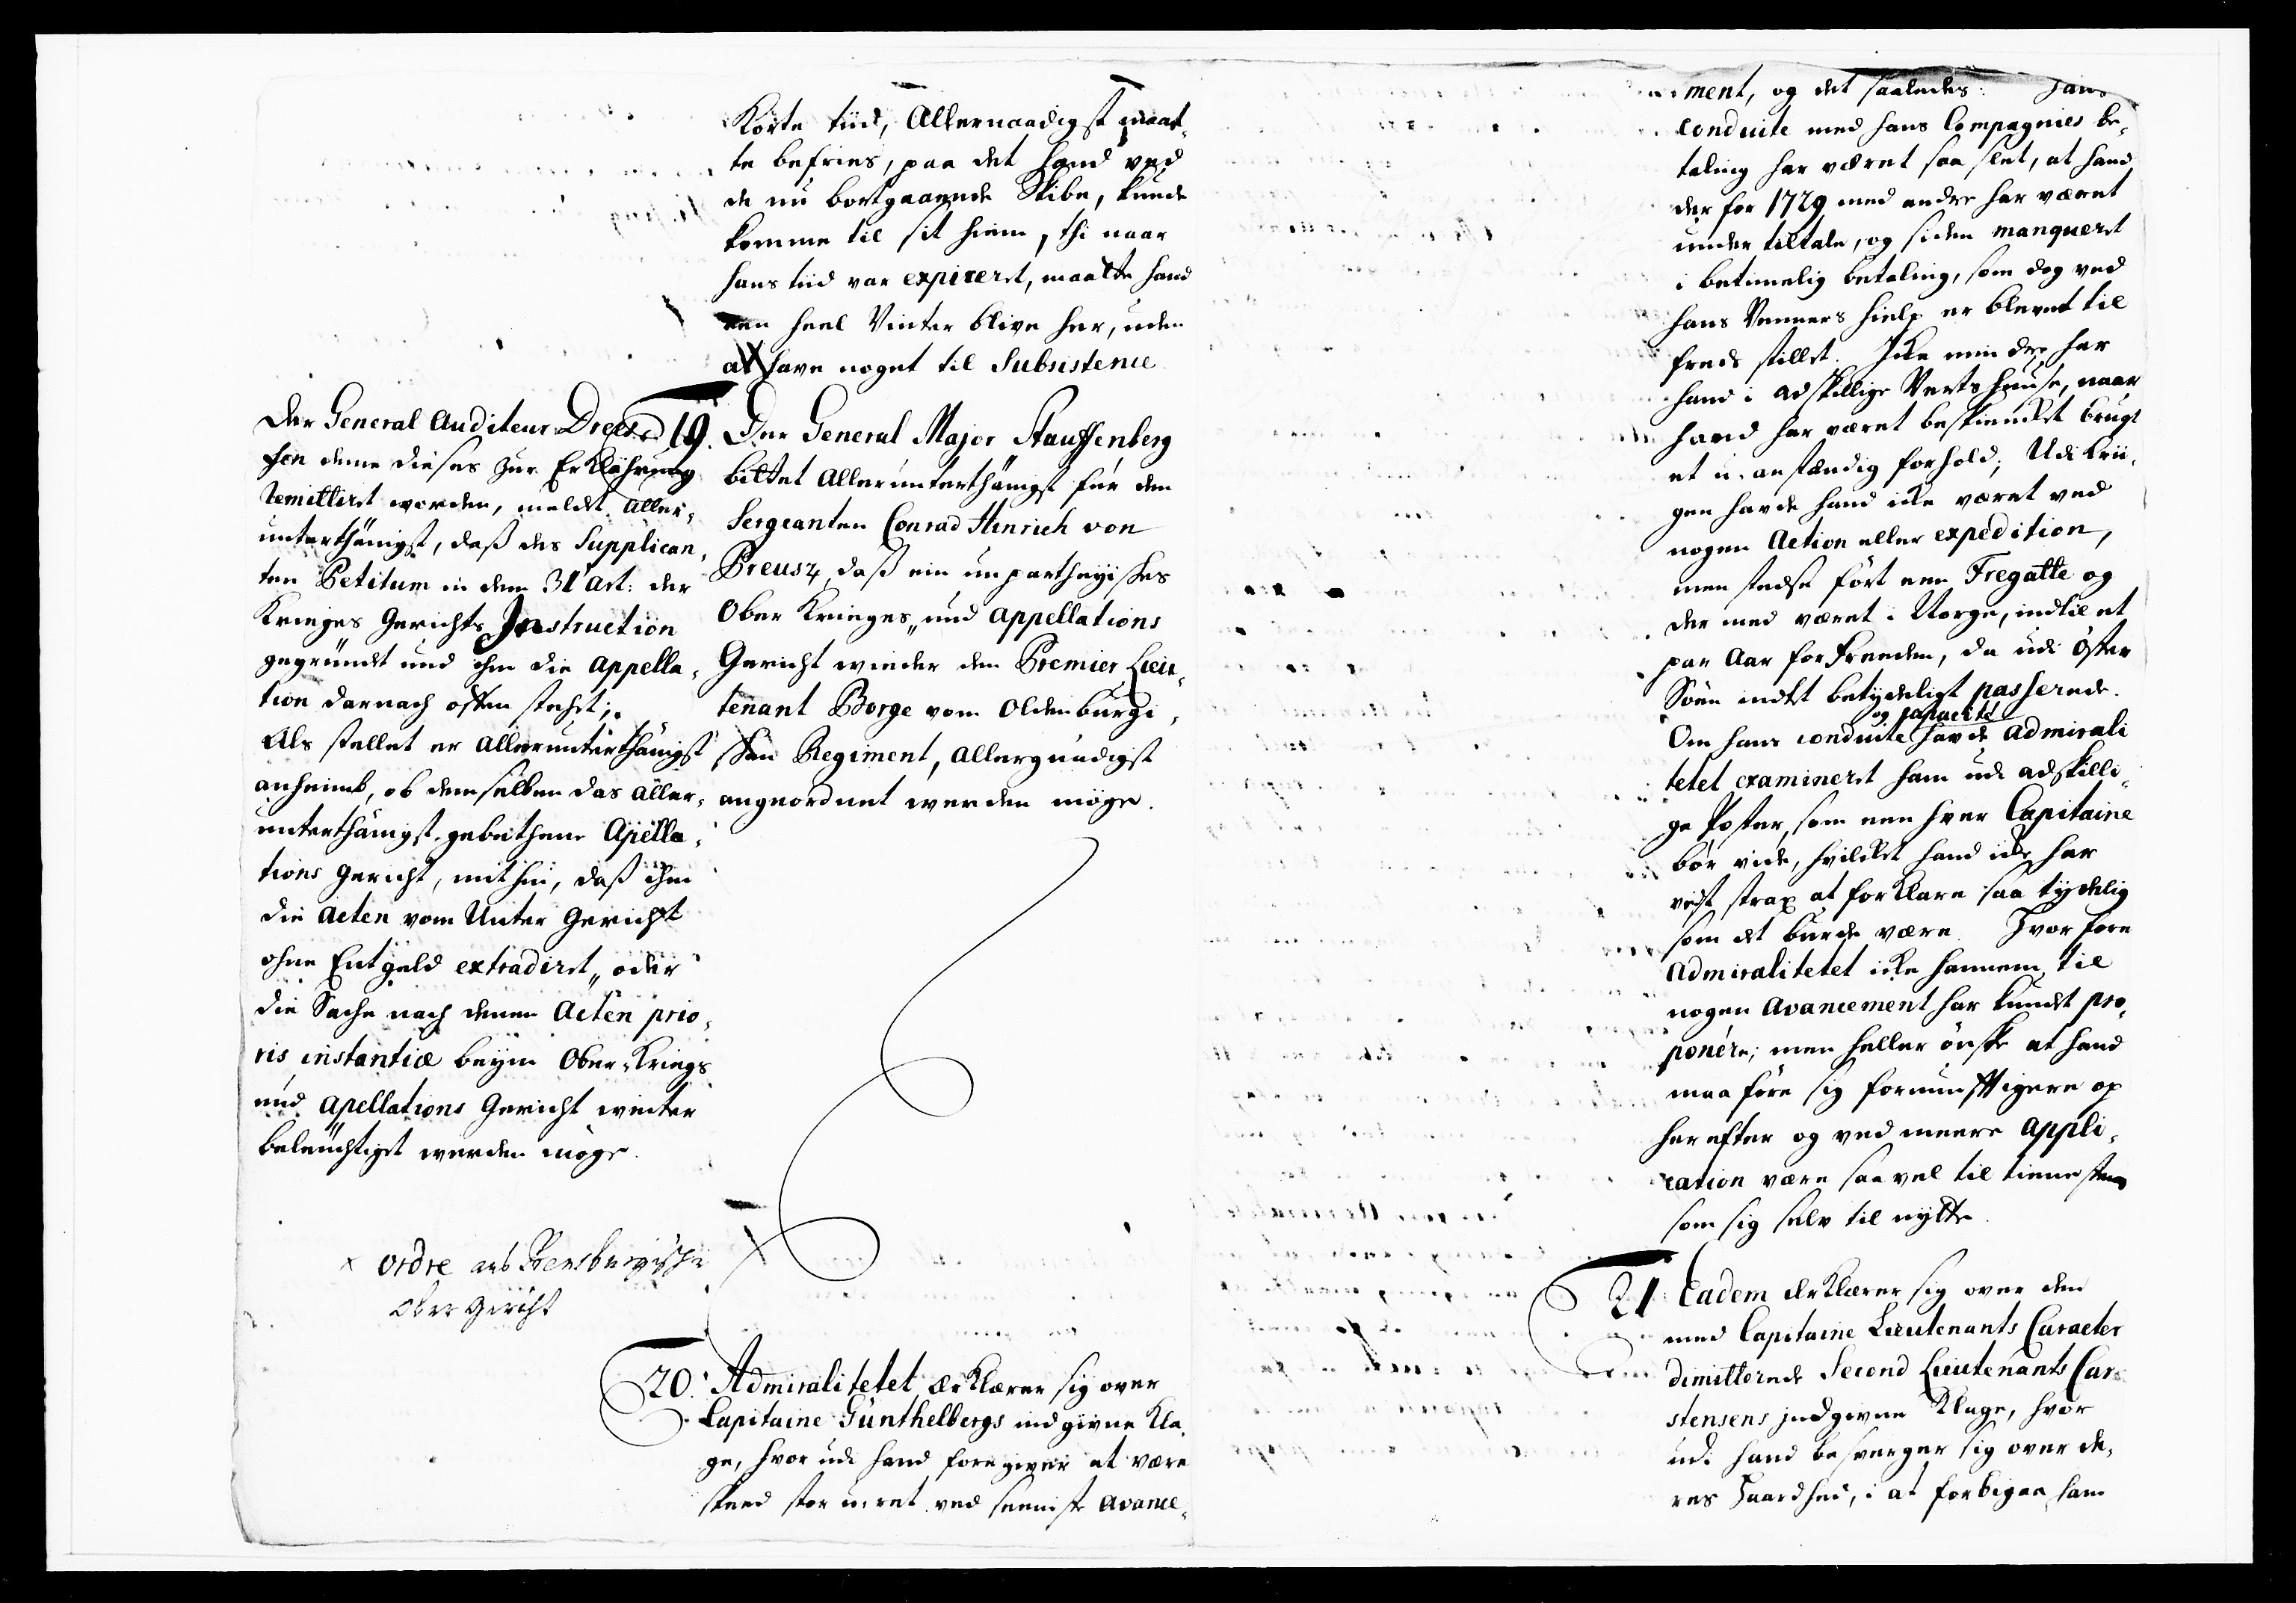 Korte tiid, Allernaadigst maat-
te befries, paa det hand ved
de nu bortgaaende Skibe, kunde
komme til sit hiem, thi naar
hans tiid var expireret, maatte hand
een heel Vinter blive her, uden
at have noget til Subsistence
Der General Auditeur Drees
hen deme dieses zur Erklährung
remittiret worden, meldet aller-
unterthänigst, daß des Supplican-
ten Petitum in dem 31 Art: der
Krieges Gerichts Instruction
gegründet und ihm die Appella-
tion darnach offen stehet;
Als stellet er allerunterthänigst
anheimb, ob demselben das aller-
unterthänigst gebethene Apella-
tions Gericht, mithin, daß ihm
die Acten vom Unter Gericht
ohne Entgeld extradiret, oder
die Sache nach denen Acten prio-
ris instantiæ beym Ober-Kriegs
und Apellations Gericht weiter
beleuchtiget werden möge.
x ordre ans Rensburgische
Ober Gericht
19. Der General Major Stauffenberg
bittet Allerunterthänigst für den
Sergeanten Conrad Hinrich von
Breusz, daß ein unpartheyisches
Ober Krieges und Appellations
Gericht wieder den Premier Lieu-
tenant Borge vom Oldenburgi-
schen Regiment, Allergnädigst
angeordnet werden möge.
20. Admiralitetet erklærer sig over
Capitaine Günthelbergs indgivne Kla-
ge, hvor udi hand foregiver at være
skeed stor u-ret ved seeniste Avance-
ment, og det saaledes: hans
conduite med hans Compagnies be-
taling har været saa slet, at hand
der for 1729 med andre har været
under tiltale, og siden manqueret
i betimelig betaling, som dog ved
hans Venners hielp er blevet til
freds stillet. Icke mindre har
hand i adskillige Vertshuuse, naar
hand har været beskiencket brugt
et u-anstændig forhold; Udi Krii-
gen havde hand icke været ved
nogen Action eller expedition,
men stedse ført een Fregatte og
der med været i Norge, indtil et
par Aar for Freeden, da udi Øster
Søen indtet betydeligt passerede.
og capacité
Om hans conduite havde Admirali
tetet examineret ham udi adskilli-
ge Poster, som een hver Capitaine
bør vide, hvilcket hand icke har
vist strax at forklare saa tydelig
som det burde være. Hvorfore
Admiralitetet icke hannem til
nogen Avancement har kundet pro-
ponére; men heller ønske at hand
maa føre sig fornunfftigere op
herefter og ved meere appli-
cation være saavel til tienesten
som sig selv til nytte.
21 Eadem erklærer sig over den
med Capitaine Lieutenants Caracter
dimitterede Second Lieutenants Car-
stensens indgivne Klage, hvor
udi hand besverger sig over de-
res Haardhed, i at forbigaa ham